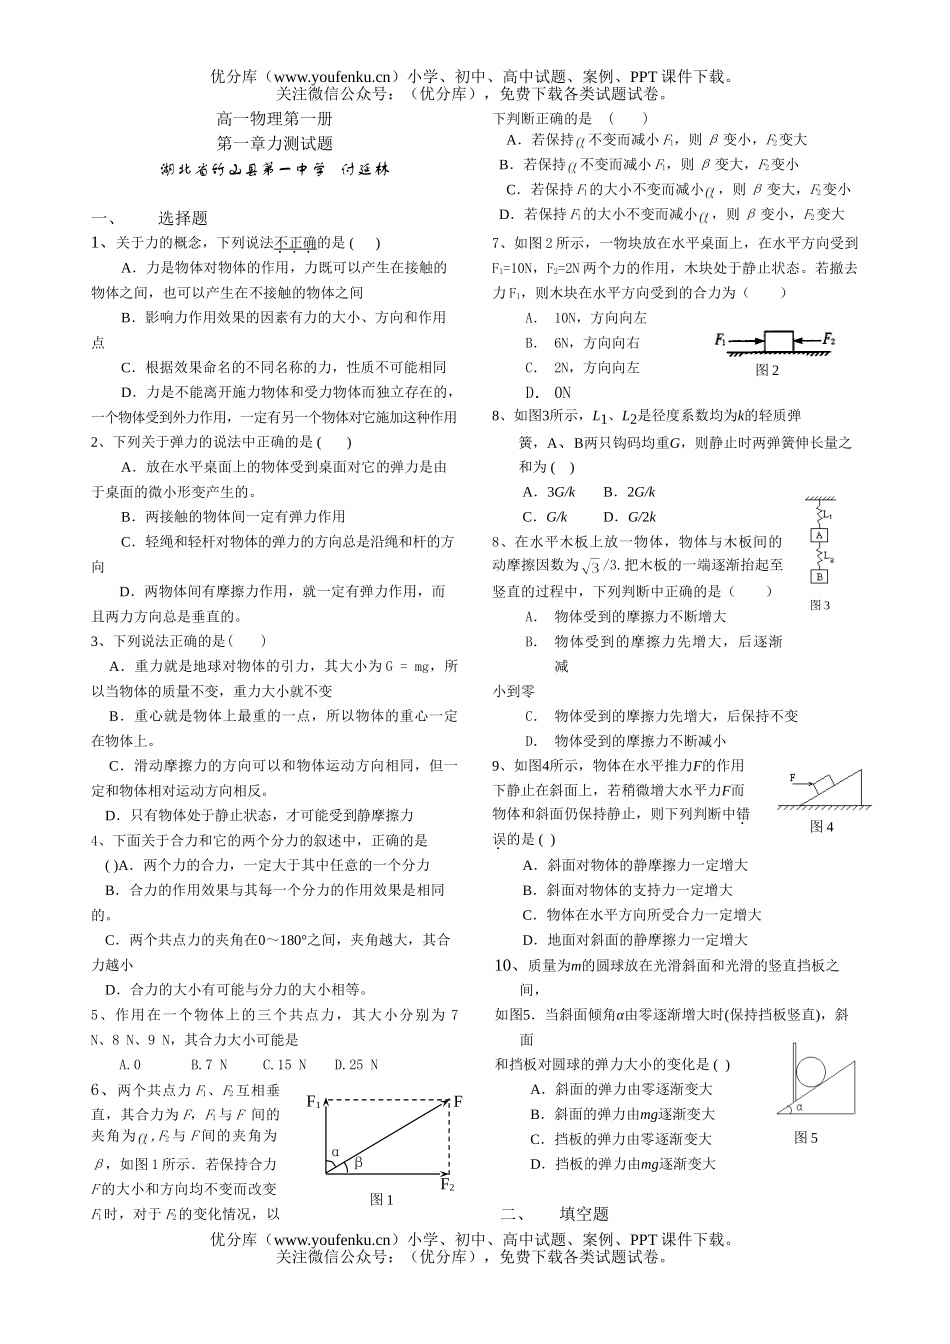 优分库（www.youfenku.cn）小学、初中、高中试题、案例、PPT 课件下载。
关注微信公众号：（优分库），免费下载各类试题试卷。
高一物理第一册
第一章力测试题
湖北省竹山县第一中学 付延林
一、 选择题
1、关于力的概念，下列说法不正确的是 ( )
A．力是物体对物体的作用，力既可以产生在接触的
物体之间，也可以产生在不接触的物体之间
B．影响力作用效果的因素有力的大小、方向和作用
点
C．根据效果命名的不同名称的力，性质不可能相同
D．力是不能离开施力物体和受力物体而独立存在的，
一个物体受到外力作用，一定有另一个物体对它施加这种作用
2、下列关于弹力的说法中正确的是 ( )
A．放在水平桌面上的物体受到桌面对它的弹力是由
于桌面的微小形变产生的。
B．两接触的物体间一定有弹力作用
C．轻绳和轻杆对物体的弹力的方向总是沿绳和杆的方
向
D．两物体间有摩擦力作用，就一定有弹力作用，而
且两力方向总是垂直的。
3、下列说法正确的是( )
A．重力就是地球对物体的引力，其大小为 G = mg，所
以当物体的质量不变，重力大小就不变
B．重心就是物体上最重的一点，所以物体的重心一定
在物体上。
C．滑动摩擦力的方向可以和物体运动方向相同，但一
定和物体相对运动方向相反。
D．只有物体处于静止状态，才可能受到静摩擦力
4、下面关于合力和它的两个分力的叙述中，正确的是
( )A．两个力的合力，一定大于其中任意的一个分力
B．合力的作用效果与其每一个分力的作用效果是相同
的。
C．两个共点力的夹角在0～180°之间，夹角越大，其合
力越小
D．合力的大小有可能与分力的大小相等。
5、作用在一个物体上的三个共点力，其大小分别为 7
N、8 N、9 N，其合力大小可能是
A.0 B.7 N C.15 N D.25 N
6、两个共点力 F₁、F₂互相垂
直，其合力为 F，F₁与 F 间的
夹角为α,F₂与 F 间的夹角为
β，如图 1 所示．若保持合力
F 的大小和方向均不变而改变
F₁时，对于 F₂的变化情况，以
F₁
F
α
β
F₂
图 1
下判断正确的是 ( )
A．若保持α不变而减小 F₁，则 β 变小，F₂变大
B．若保持α不变而减小 F₁，则 β 变大，F₂变小
C．若保持 F₁的大小不变而减小α，则 β 变大，F₂变小
D．若保持 F₁的大小不变而减小α，则 β 变小，F₂变大
7、如图 2 所示，一物块放在水平桌面上，在水平方向受到
F₁=10N，F₂=2N 两个力的作用，木块处于静止状态。若撤去
力 F₁，则木块在水平方向受到的合力为（ ）
A． 10N，方向向左
B． 6N，方向向右
C． 2N，方向向左
D． 0N
F₁
F₂
图 2
8、如图3所示，L₁、L₂是径度系数均为k的轻质弹
簧，A、B两只钩码均重G，则静止时两弹簧伸长量之
和为 ( )
A．3G/k B．2G/k
C．G/k D．G/2k
L₁
A
L₂
B
图 3
8、在水平木板上放一物体，物体与木板间的
动摩擦因数为 √3 /3.把木板的一端逐渐抬起至
竖直的过程中，下列判断中正确的是（ ）
A． 物体受到的摩擦力不断增大
B． 物体受到的摩擦力先增大，后逐渐
减
小到零
C． 物体受到的摩擦力先增大，后保持不变
D． 物体受到的摩擦力不断减小
9、如图4所示，物体在水平推力F的作用
下静止在斜面上，若稍微增大水平力F而
物体和斜面仍保持静止，则下列判断中错
误的是 ( )
F
图 4
A．斜面对物体的静摩擦力一定增大
B．斜面对物体的支持力一定增大
C．物体在水平方向所受合力一定增大
D．地面对斜面的静摩擦力一定增大
10、质量为m的圆球放在光滑斜面和光滑的竖直挡板之
间，
如图5．当斜面倾角α由零逐渐增大时(保持挡板竖直)，斜
面
和挡板对圆球的弹力大小的变化是 ( )
A．斜面的弹力由零逐渐变大
B．斜面的弹力由mg逐渐变大
C．挡板的弹力由零逐渐变大
D．挡板的弹力由mg逐渐变大
α
图 5
二、 填空题
优分库（www.youfenku.cn）小学、初中、高中试题、案例、PPT 课件下载。
关注微信公众号：（优分库），免费下载各类试题试卷。